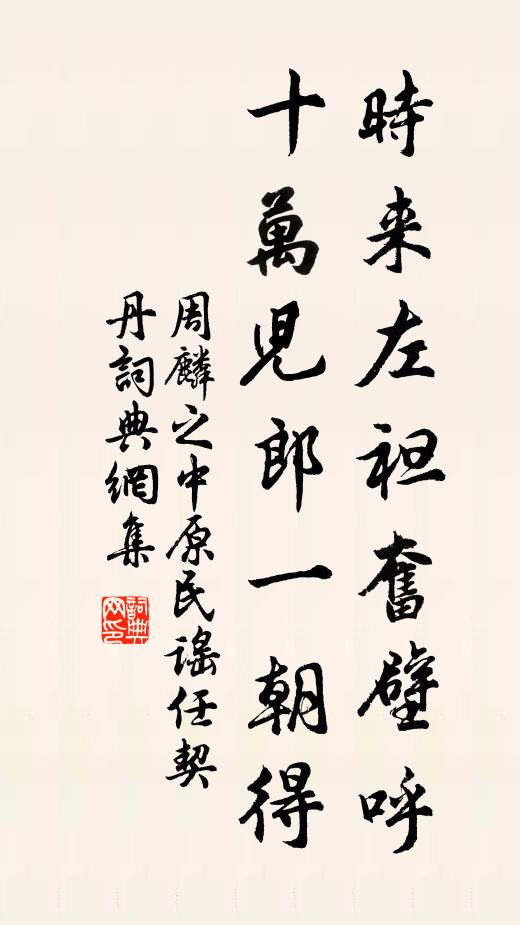 時来左袒奮壁呼
十萬児郎一朝得
周麟之中原民謡任契
丹詞典網集
詞典
网印